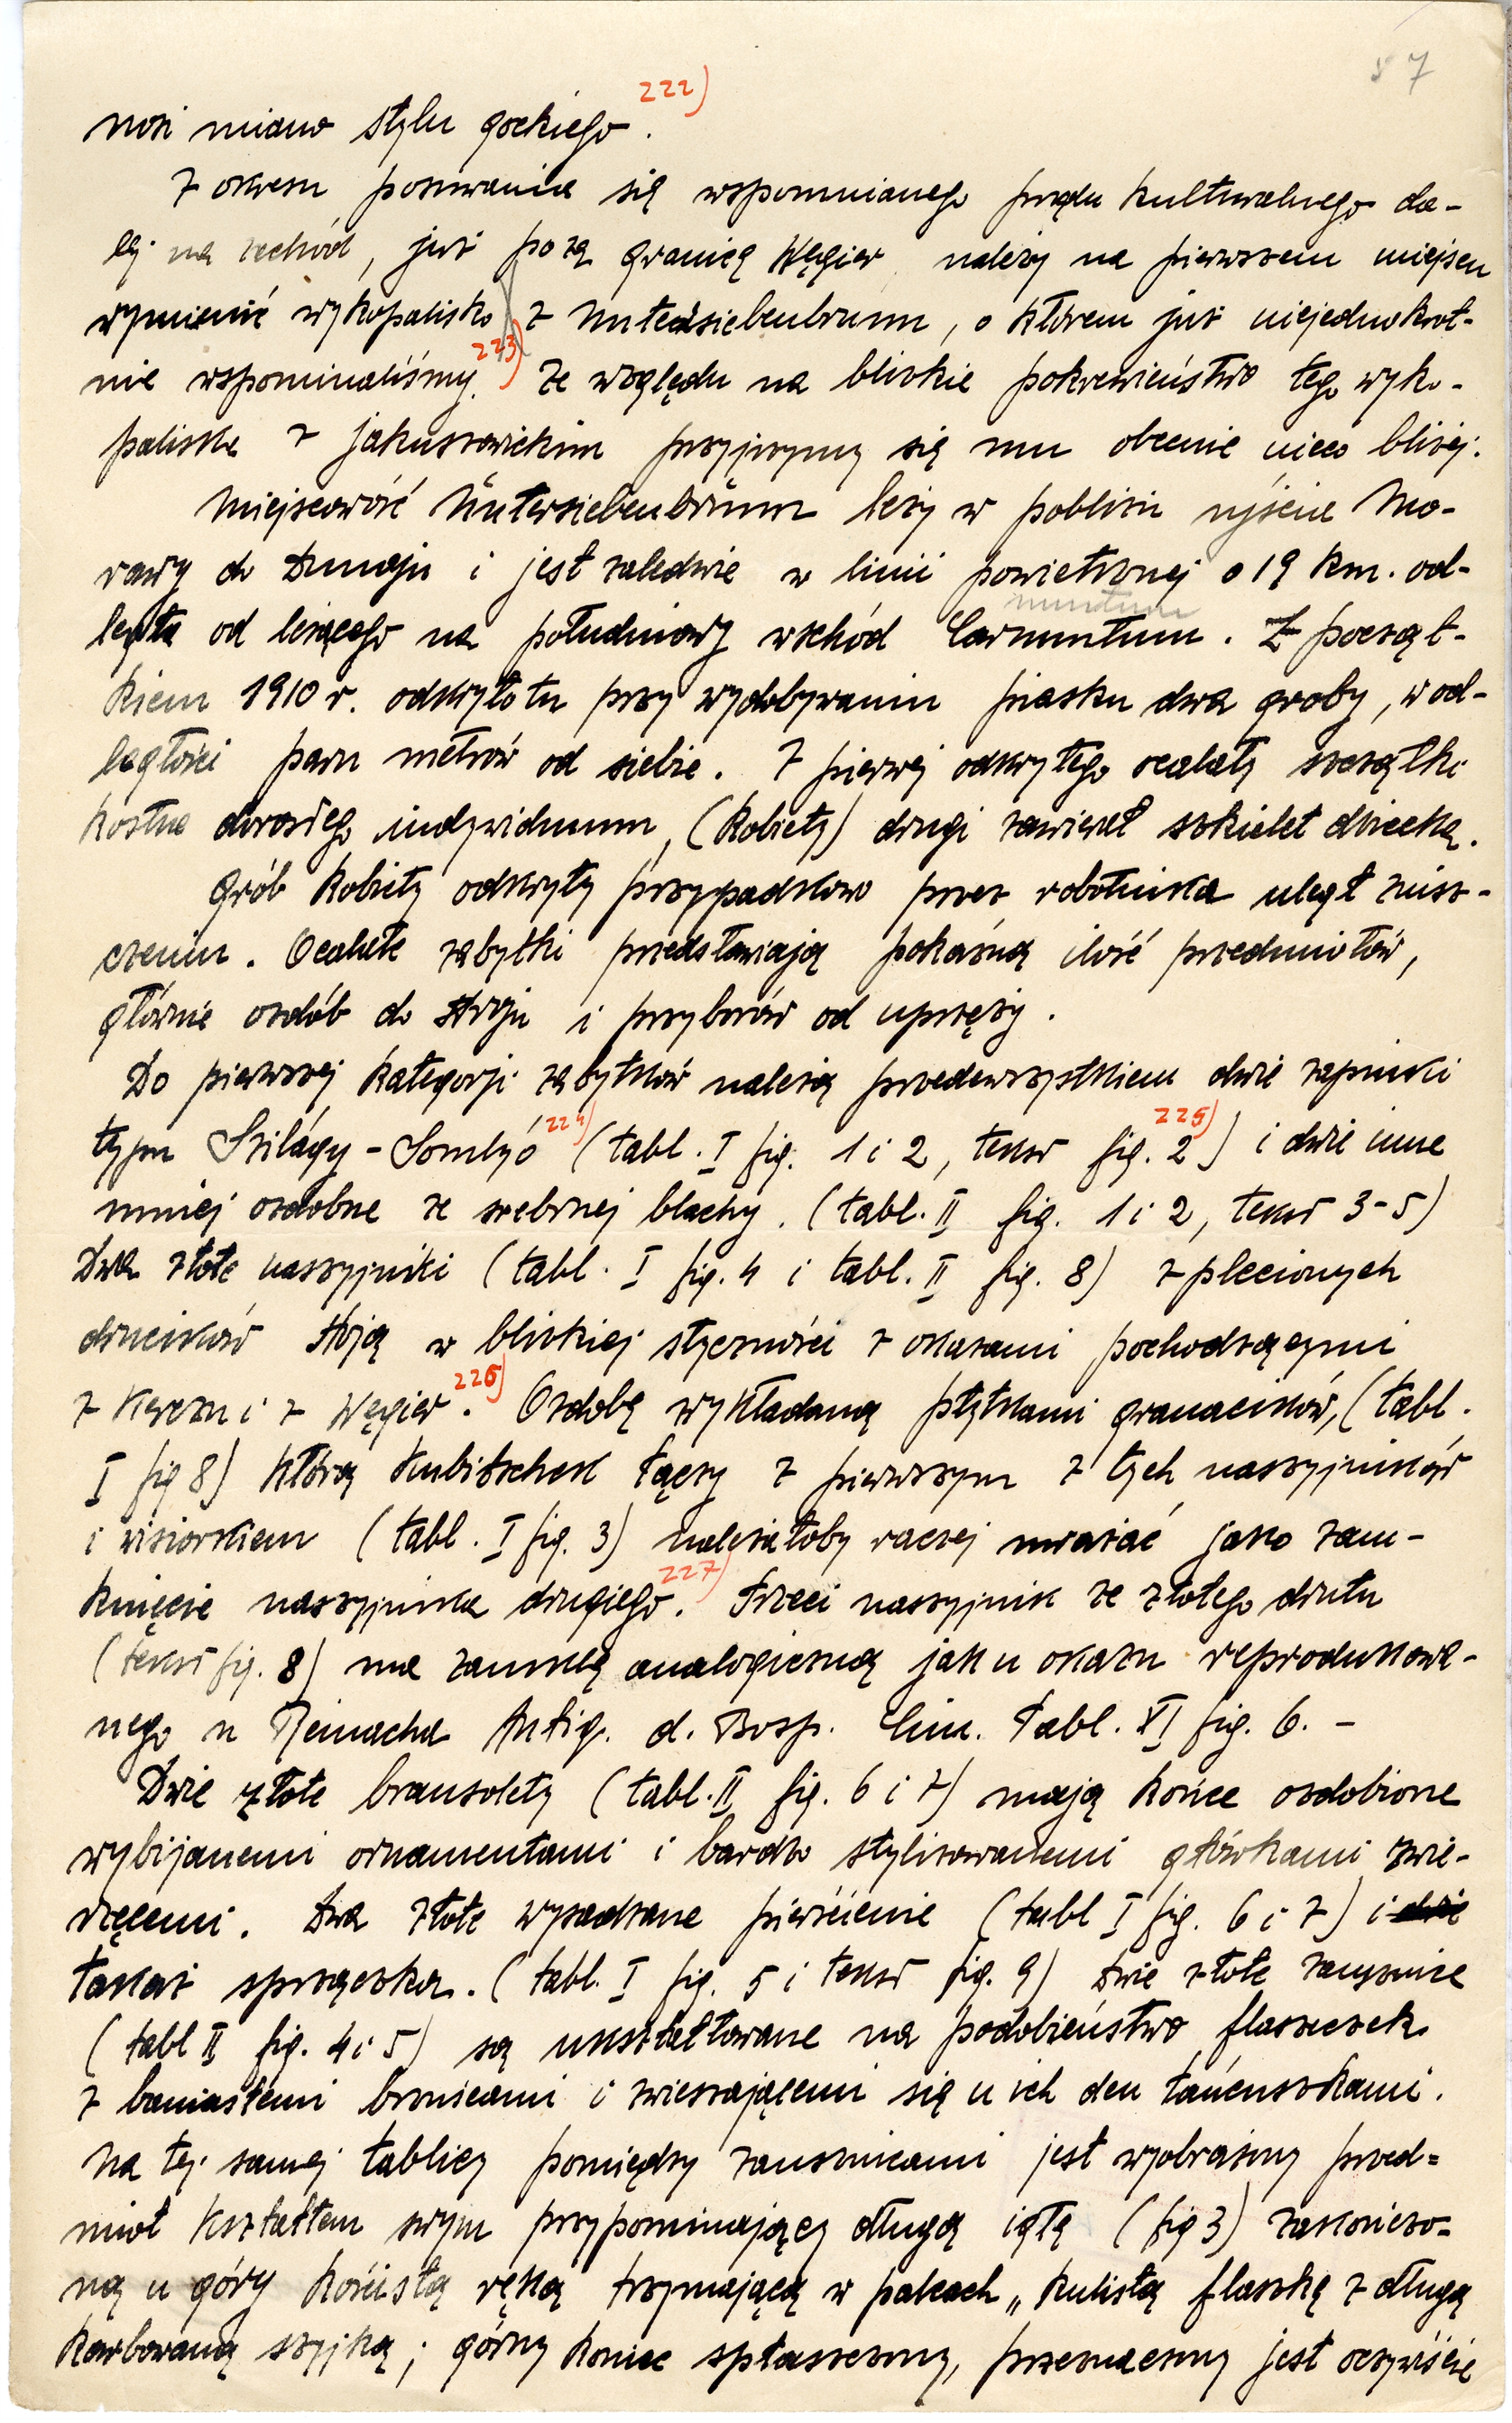 87
nosi miano stylu gockiego. 222)
Z okresu posuwania się wspomnianego prądu kulturalnego da-
lej na zachód, już poza granicą Węgier należy na pierwszem miejscu
wymienić wykopalisko z Untersiebenbrunn, o którem już niejednokrot-
nie wspominaliśmy. 223) Ze względu na bliskie pokrewieństwo tego wyko-
paliska z jakuszowickim przyjrzymy się mu obecnie nieco bliżej.
Miejscowość Untersiebenbrunn leży w pobliżu ujścia Mo-
rawy do Dunaju i jest zaledwie w linii powietrznej o 19 km. od-
legła od leżącego na południowy wschód Carnuntum. Z począt-
kiem 1910 r. odkryto tu przy wydobywaniu piasku dwa groby, w od-
ległości paru metrów od siebie. Z pierwej odkrytego ocalały szczątki
kostne dorosłego indywiduum, (kobiety) drugi zawierał szkielet dziecka.
Grób kobiety odkryty przypadkowo przez robotnika uległ znisz-
czeniu. Ocalałe zabytki przedstawiają pokaźną ilość przedmiotów,
głównie ozdób do stroju i przyborów od uprzęży.
Do pierwszej kategorji zabytków należą przedewszystkiem dwie zapinki
typu Szilágy-Somlyó 224) (tabl. I fig. 1 i 2, tekst fig. 2) 225) i dwie inne
mniej ozdobne ze srebrnej blachy. (tabl. II fig. 1 i 2, tekst 3-5)
Dwa złote naszyjniki (tabl. I fig. 4 i tabl. II fig. 8) z plecionych
drucików stoją w bliskiej styczności z okazami pochodzącymi
z Kerczu i z Węgier. 226) Ozdobę wykładaną płytkami granacików, (tabl.
I fig 8) którą Kubitschek łączy z pierwszym z tych naszyjników
i wisiorkiem (tabl. I fig. 3) należałoby raczej uważać jako zam-
knięcie naszyjnika drugiego. 227) Trzeci naszyjnik ze złotego drutu
(tekst fig. 8) ma zausze̢ analogiczną jak u okazu reprodukowa-
nego u Reinacha Antiq. d. Bosp. Cim. Tabl. XI fig. 6. -
Dwie złote bransolety (tabl. II fig. 6 i 7) mają końce ozdobione
wybijanemi ornamentami i bardzo stylizowanemi główkami zwie-
rzęcemi. Dwa złote wysadzane pierścienie (tabl I fig. 6 i 7) i dwie
takaż sprzączka. (tabl. I fig. 5 i tekst fig. 9) Dwie złote zausznice
(tabl II fig. 4 i 5) są ukształtowane na podobieństwo flaszeczek
z baniastemi brzuścami i zwieszającemi się u ich den łańcuszkami.
Na tej samej tablicy pomiędzy zausznicami jest wyobrażony przed-
miot kształtem swym przypominający długą igłą (fig 3) zakończo-
ną u góry kościstą ręką trzymającą w palcach „kulistą flaszką z długą
karbowaną szyjką; górny koniec spłaszczony, przeznaczony jest oczywiście